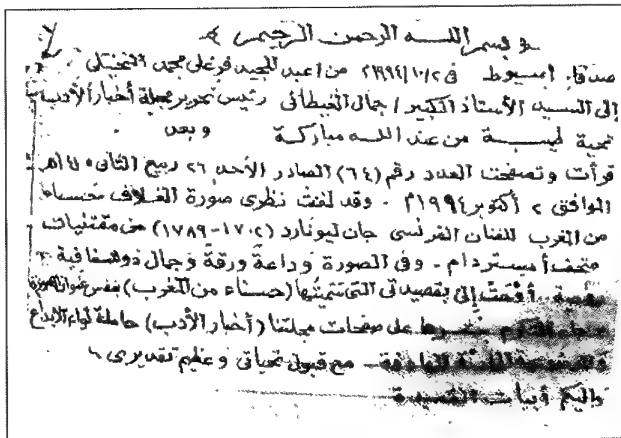 بسم الله الرحمن الرحيم
صدفا / أسيوط في ٢/١٠/١٩٩٤م من / عبد المجيد فرغلي محمد النخيلي
إلى السيد الأستاذ الكبير / جمال الغيطاني رئيس تحرير مجلة أخبار الأدب
تحية طيبة من عند الله مباركة وبعد
قرأت وتصفحت العدد رقم (٦٤) الصادر الأحد ٢٦ ربيع الثاني ١٤١٥هـ
الموافق ٢ أكتوبر ١٩٩٤م . وقد لفت نظري صورة الغلاف حسناء
من المغرب للفنان الفرنسي جان ليونارد (١٧٠٢-١٧٨٩) من مقتنيات
متحف أمستردام . وفي الصورة وداعة ورقة وجمال ذو شفافية
أوحت إلي بقصيدتي التي ضمنتها (حسناء من المغرب) بنفس عنوان الصورة
على صفحات مجلتنا (أخبار الأدب) حاملة لواء الإبداع
مع قبول تحياتي وعظيم تقديري
وإليكم أبيات القصيدة